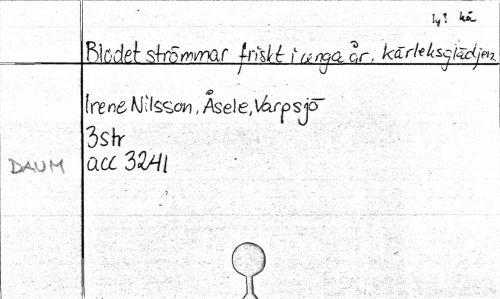 ly? kä
Blodet strömmar friskt i unga år, kärleksglädjen
Irene Nilsson, Åsele, Varpsjö
3str
DAUM acc 3241